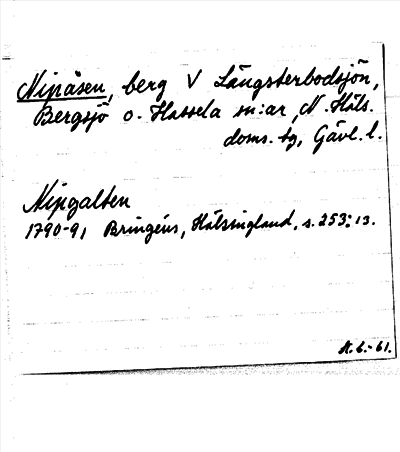 Nipåsen, berg V Långsterbodsjön,
Bergsjö o. Hassela sn:ar, N. Häls.
doms. tg, Gävl. l.
Nipgalten
1790-91 Bringéus, Hälsingland, s. 253: 13.
A. 6.-61.